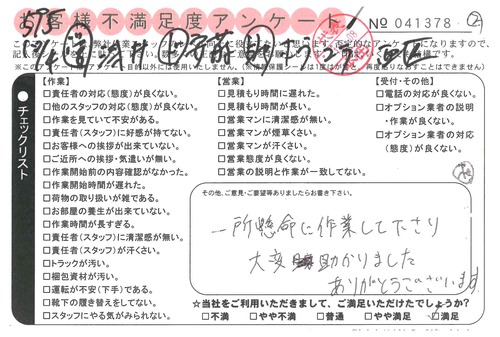 お客様不満足度アンケート
No 041378
【作業】
□責任者の対応(態度)が良くない。
□他のスタッフの対応(態度)が良くない。
□作業を見ていて不安がある。
□責任者(スタッフ)に好感が持てない。
□お客様への挨拶が出来ていない。
□ご近所への挨拶・気遣いが無い。
□作業開始前の内容確認がなかった。
□作業開始時間が遅れた。
□荷物の取り扱いが雑である。
□お部屋の養生が出来ていない。
□作業時間が長すぎる。
□責任者(スタッフ)に清潔感が無い。
□責任者(スタッフ)が汗くさい。
□トラックが汚い。
□梱包資材が汚い。
□運転が不安(下手)である。
□靴下の履き替えをしてない。
□スタッフにやる気がみられない。
【営業】
□見積もり時間に遅れた。
□見積もり時間が長い。
□営業マンに清潔感が無い。
□営業マンが煙草くさい。
□営業マンが汗くさい。
□営業態度が良くない。
□営業の説明と作業が一致してない。
【受付・その他】
□電話の対応が良くない。
□オプション業者の説明
・作業が良くない。
□オプション業者の対応
(態度)が良くない。
チェックリスト
その他、ご意見・ご要望等ありましたらお書き下さい。
一所懸命に作業して下さり
大変助かりました
ありがとうございます
☆当社をご利用いただきまして、ご満足いただけたでしょうか?
□不満 □やや不満 □普通 □やや満足 □満足